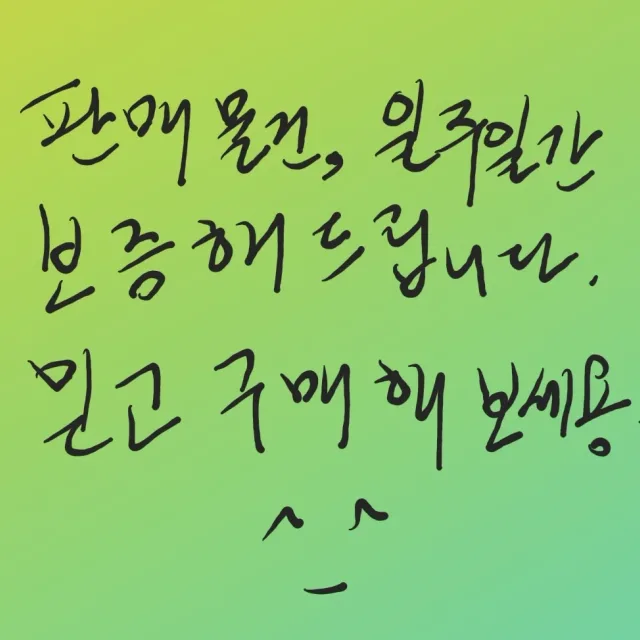 판매 물건, 일주일간
보증해 드립니다.
믿고 구매해 보세용.
^_^